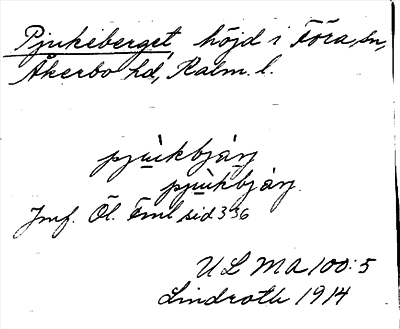 Pjukeberget, höjd i Föra sn,
Åkerbo hd, Kalm. l.
pjùkbjàrj
pjùkbjàrj.
Jmf. Öl. Fml sid 336
ULMA 100:5
Lindroth 1914